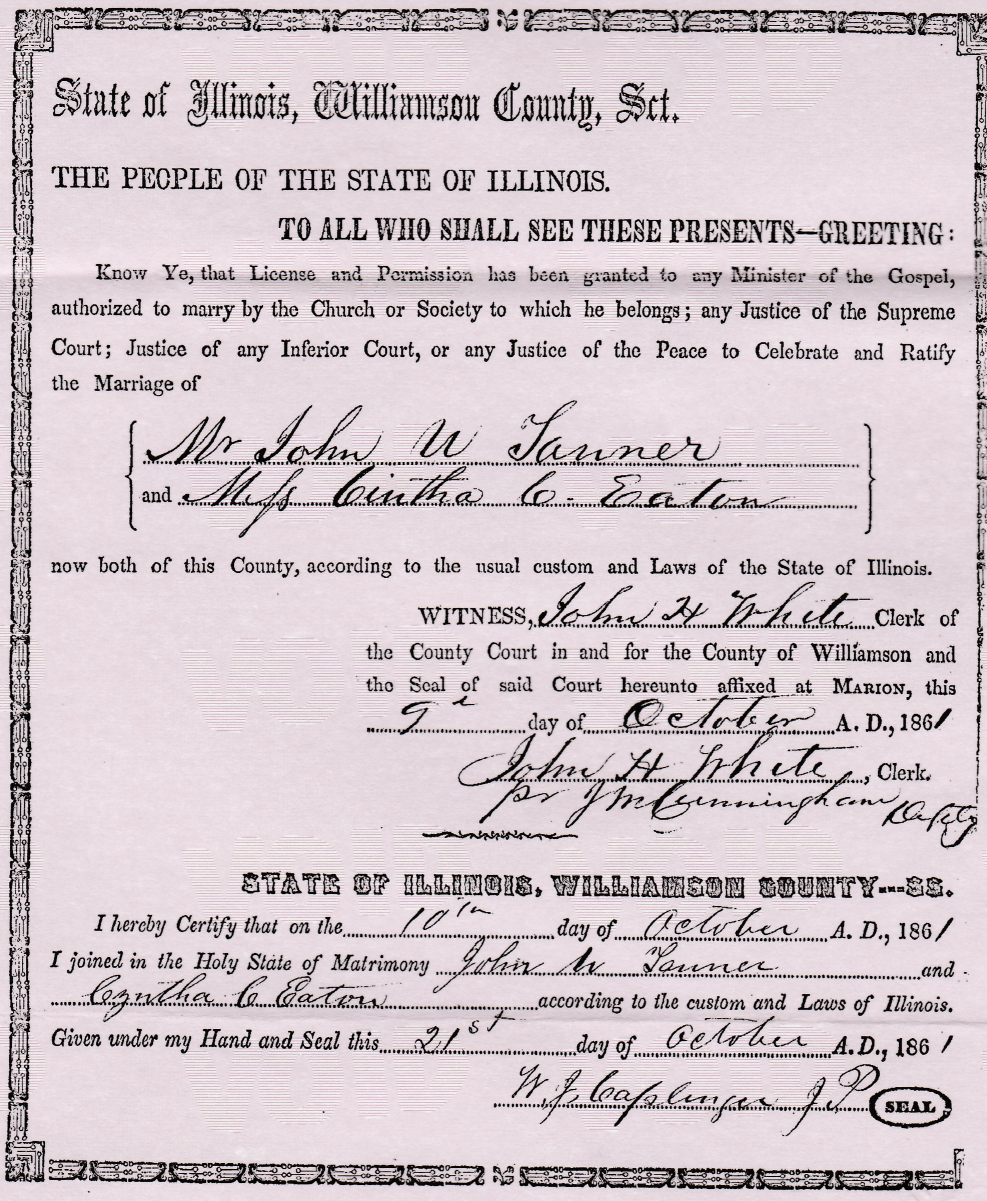 State of Illinois, Williamson County, Sct.
THE PEOPLE OF THE STATE OF ILLINOIS.
TO ALL WHO SHALL SEE THESE PRESENTS—GREETING:
Know Ye, that License and Permission has been granted to any Minister of the Gospel,
authorized to marry by the Church or Society to which he belongs; any Justice of the Supreme
Court; Justice of any Inferior Court, or any Justice of the Peace to Celebrate and Ratify
the Marriage of
Mr John W Tanner
and Miss Cintha C. Eaton
now both of this County, according to the usual custom and Laws of the State of Illinois.
WITNESS, John H White Clerk of
the County Court in and for the County of Williamson and
the Seal of said Court hereunto affixed at MARION, this
9 day of October A. D., 1861
John H White, Clerk.
pr J M Cunningham Depty
STATE OF ILLINOIS, WILLIAMSON COUNTY---SS.
I hereby Certify that on the 10th day of October A. D., 1861
I joined in the Holy State of Matrimony John W Tanner and
Cyntha C Eaton according to the custom and Laws of Illinois.
Given under my Hand and Seal this 21st day of October A. D., 1861
W. J. Caplinger J. P. SEAL